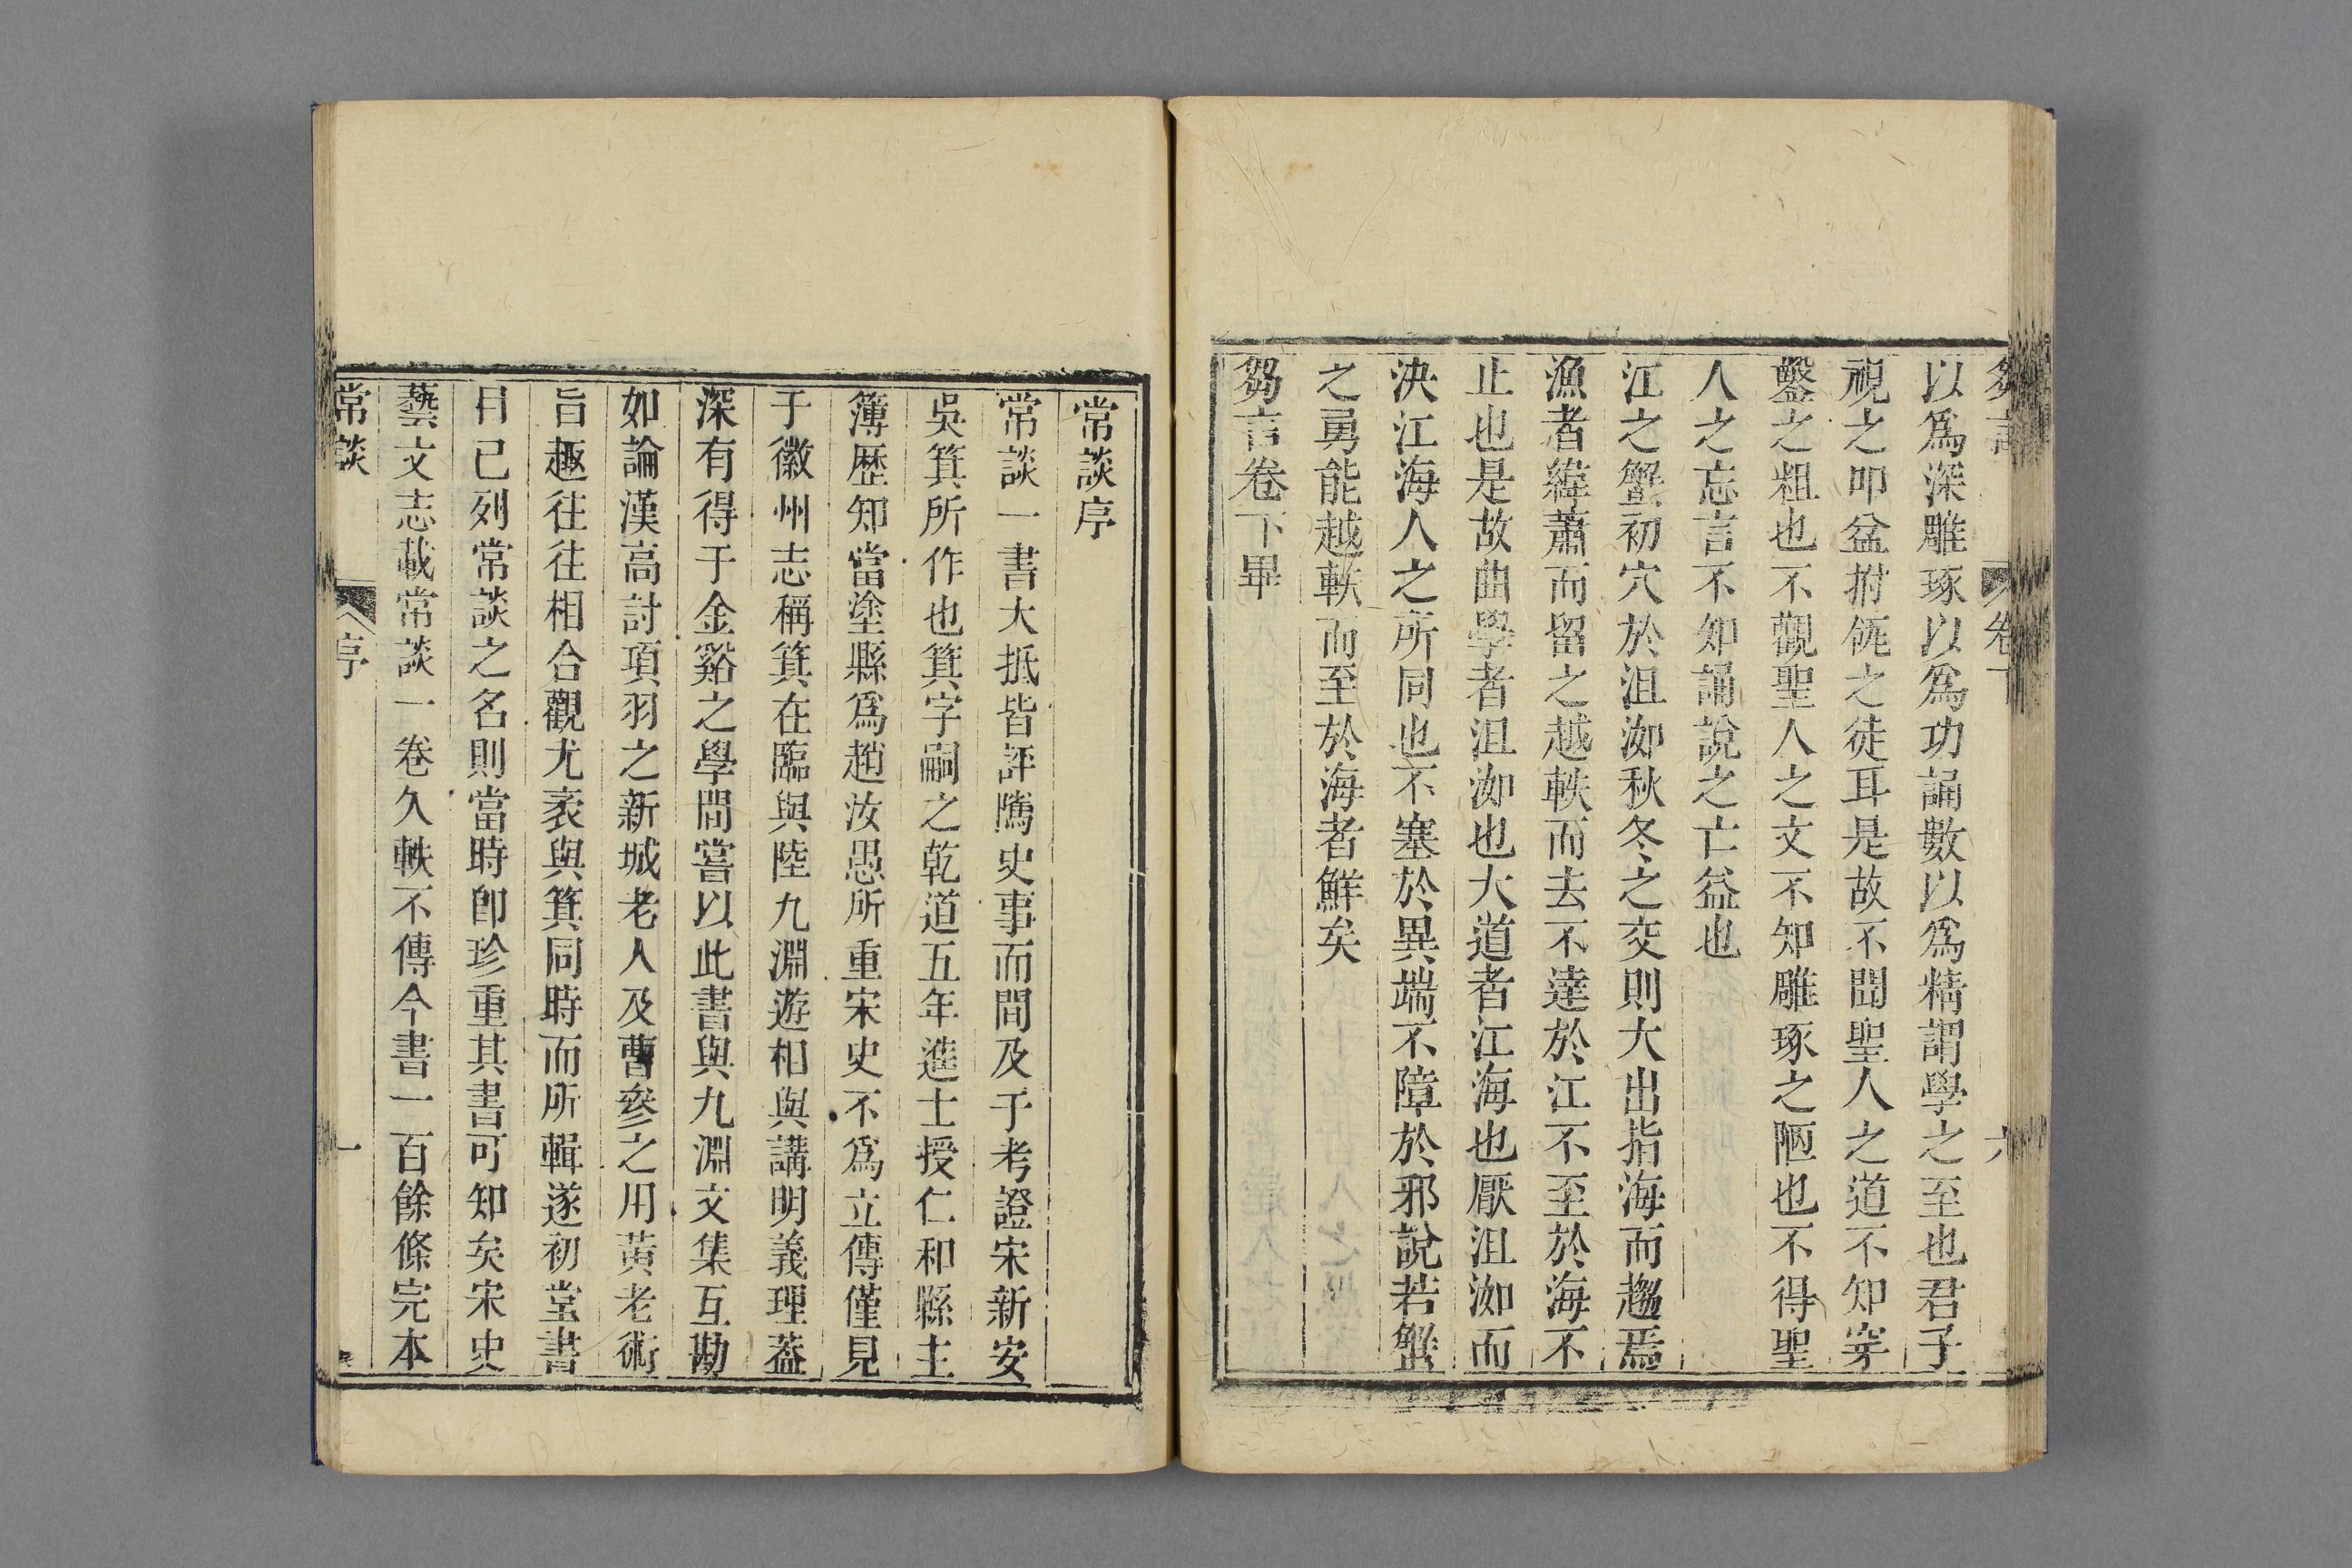 芻言 卷下 六
以爲深雕琢以爲功誦數以爲精謂學之至也君子
視之叩盆拊瓴之徒耳是故不聞聖人之道不知穿
鑿之粗也不觀聖人之文不知雕琢之陋也不得聖
人之忘言不知誦說之亡益也
江之蟹初穴於沮洳秋冬之交則大出指海而趨焉
漁者緯蕭而留之越軼而去不達於江不至於海不
止也是故曲學者沮洳也大道者江海也厭沮洳而
決江海人之所同也不塞於異端不障於邪說若蟹
之勇能越軼而至於海者鮮矣
芻言卷下畢
常談序
常談一書大抵皆評隲史事而間及于考證宋新安
吳箕所作也箕字嗣之乾道五年進士授仁和縣主
簿歷知當塗縣爲趙汝愚所重宋史不爲立傳僅見
于徽州志稱箕在臨與陸九淵遊相與講明義理葢
深有得于金谿之學間嘗以此書與九淵文集互勘
如論漢高討項羽之新城老人及曹參之用黃老術
旨趣往往相合觀尤袤與箕同時而所輯遂初堂書
目已列常談之名則當時卽珍重其書可知矣宋史
藝文志載常談一卷久軼不傳今書一百餘條完本
常談 序 一